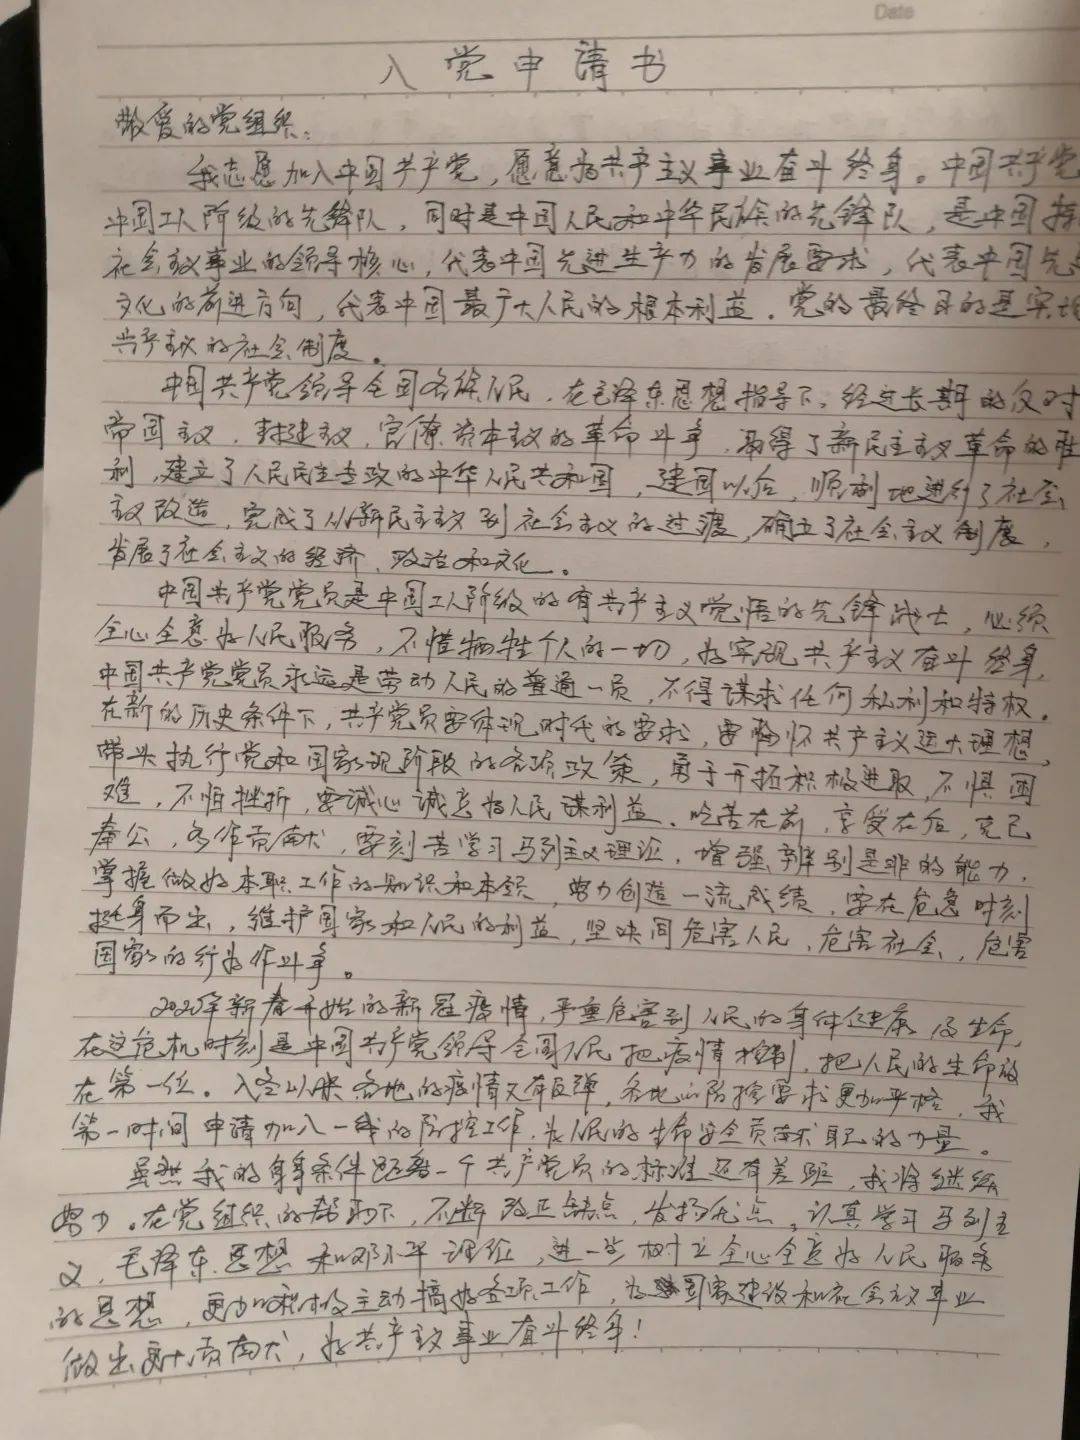 Date
入党申请书
敬爱的党组织：
我志愿加入中国共产党，愿意为共产主义事业奋斗终身。中国共产党
中国工人阶级的先锋队，同时是中国人民和中华民族的先锋队，是中国
社会主义事业的领导核心，代表中国先进生产力的发展要求，代表中国先
文化的前进方向，代表中国最广大人民的根本利益。党的最终目的是实现
共产主义的社会制度。
中国共产党领导全国各族人民，在毛泽东思想指导下，经过长期的反对
帝国主义，封建主义，官僚资本主义的革命斗争，取得了新民主主义革命的胜
利，建立了人民民主专政的中华人民共和国，建国以后，顺利地进行了社会
主义改造，完成了从新民主主义到社会主义的过渡，确立了社会主义制度，
发展了社会主义的经济、政治和文化。
中国共产党党员是中国工人阶级的有共产主义觉悟的先锋战士，必须
全心全意为人民服务，不惜牺牲个人的一切，为实现共产主义奋斗终身，
中国共产党党员永远是劳动人民的普通一员，不得谋求任何私利和特权。
在新的历史条件下，共产党员要体现时代的要求，要胸怀共产主义远大理想，
带头执行党和国家现阶段的各项政策，勇于开拓积极进取，不惧困
难，不怕挫折，要诚心诚意为人民谋利益、吃苦在前，享受在后，克己
奉公，多作贡献，要刻苦学习马列主义理论，增强辨别是非的能力，
掌握做好本职工作的知识和本领，努力创造一流成绩，要在危急时刻
挺身而出，维护国家和人民的利益，坚决同危害人民、危害社会，危害
国家的行为作斗争。
2020年新春开始的新冠疫情，严重危害到人民的身体健康及生命，
在这危机时刻是中国共产党领导全国人民把疫情控制，把人民的生命放
在第一位。入冬以来各地的疫情又有反弹，各地的防控要求更加严格，我
第一时间申请加入一线的防控工作，为人民的生命安全贡献自己的力量。
虽然我的自身条件距离一个共产党员的标准还有差距，我将继续
努力。在党组织的帮助下，不断改正缺点，发扬优点，认真学习马列主
义，毛泽东思想和邓小平理论，进一步树立全心全意为人民服务
的思想，更加积极主动搞好各项工作，为国家建设和社会主义事业
做出更大贡献，为共产主义事业奋斗终身！